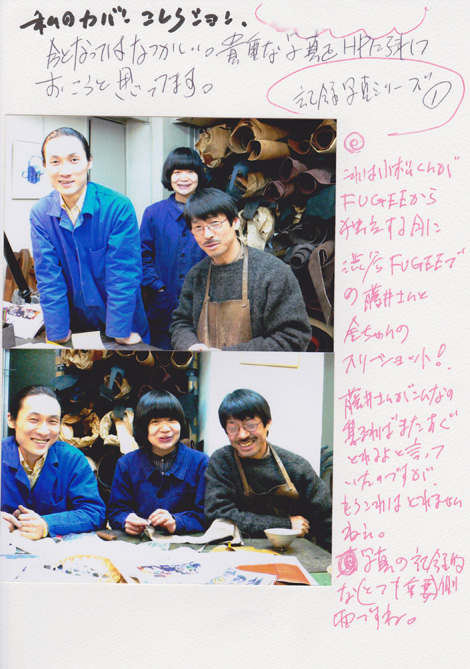 私のカバンコレクション.
今となってはなつかしい。貴重な写真をHPに残して
おこうと思ってます。
記録写真シリーズ①
これは小松くんが
FUGEEから
独立する月に
渋谷FUGEEで
の藤井さんと
金ちゃんの
スリーショット!
藤井さんがこんなの
集まればまたすぐ
とれるよと言って
いたのですが、
もうこれはとれません
ねぇ。
写真の記録的
な(とても重要)側
面ですね。